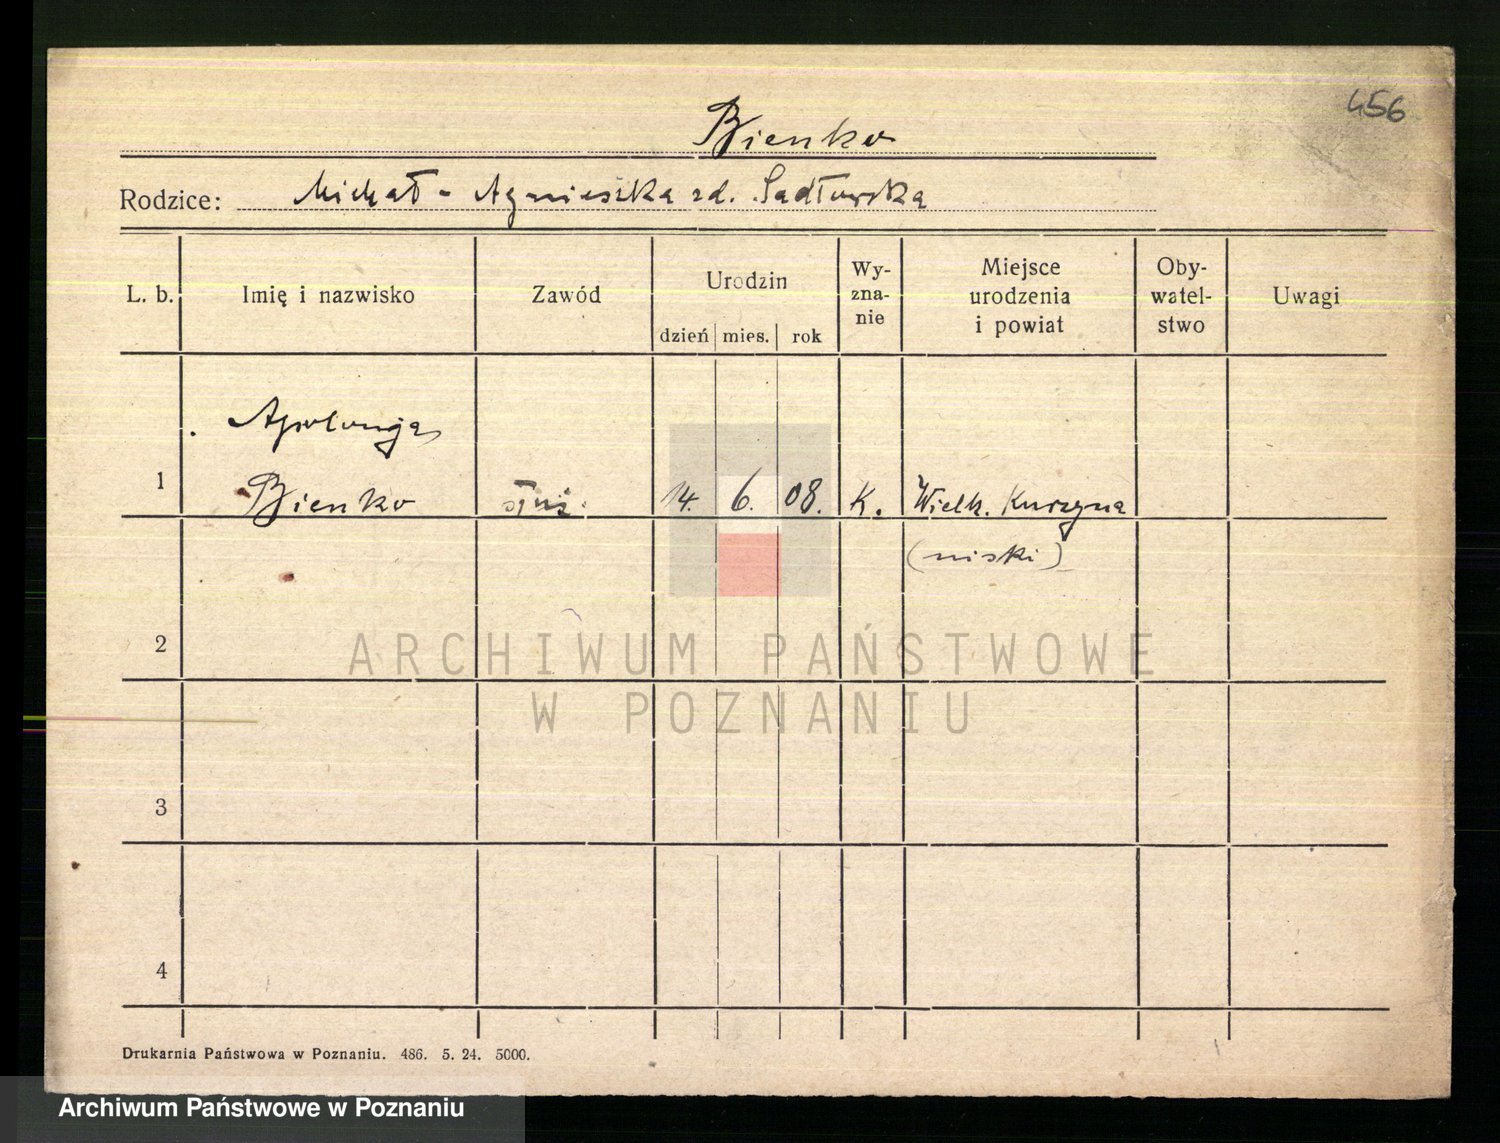 456
Bienko
Rodzice: Michał - Agnieszka zd. Sadłowska
L. b.
Imię i nazwisko
Zawód
Urodzin
dzień mies. rok
Wy-
zna-
nie
Miejsce
urodzenia
i powiat
Oby-
watel-
stwo
Uwagi
Apolonja
1 Bienko służ. 14. 6. 08. K. Wielk. Kurzyna
(niski)
2
ARCHIWUM PAŃSTWOWE
W POZNANIU
3
4
Drukarnia Państwowa w Poznaniu. 486. 5. 24. 5000.
Archiwum Państwowe w Poznaniu